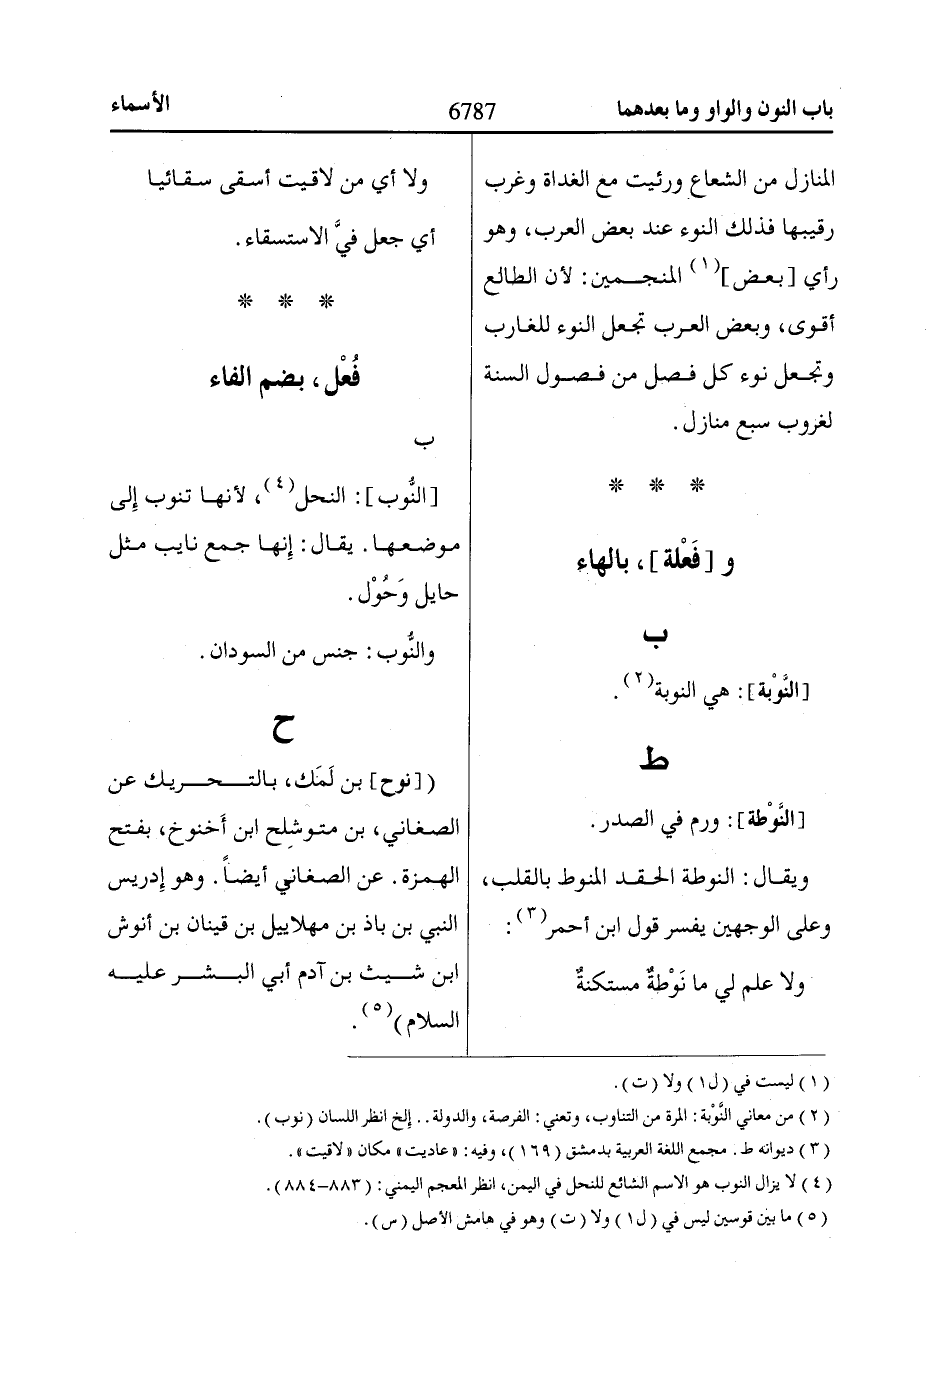 باب النون والواو وما بعدهما 6787 الأسماء
المنازل من الشعاع ورئيت مع الغداة وغرب
رقيبها فذلك النوء عند بعض العرب، وهو
رأي [بعض](١) المنجمين: لأن الطالع
أقوى، وبعض العرب تجعل النوء للغارب
وتجعل نوء كل فصل من فصول السنة
لغروب سبع منازل.
* * *
و [فَعْلة]، بالهاء
ب
[النَّوْبة]: هي النوبة(٢).
ط
[النَّوْطة]: ورم في الصدر.
ويقال: النوطة الحقد المنوط بالقلب،
وعلى الوجهين يفسر قول ابن أحمر(٣):
ولا علم لي ما نَوْطةٌ مستكنةٌ
ولا أي من لاقيت أسقى سقائيا
أي جعل فيَّ الاستسقاء.
* * *
فُعْل، بضم الفاء
ب
[النُّوب]: النحل(٤)، لأنها تنوب إلى
موضعها. يقال: إنها جمع نايب مثل
حايل وَحُوْل.
والنُّوب: جنس من السودان.
ح
([نوح] بن لَمَك، بالتحريك عن
الصغاني، بن متوشلح ابن أَخنوخ، بفتح
الهمزة. عن الصغاني أيضاً. وهو إدريس
النبي بن باذ بن مهلاييل بن قينان بن أنوش
ابن شيث بن آدم أبي البشر عليه
السلام)(٥).
(١) ليست في (ل١) ولا (ت).
(٢) من معاني النَّوْبة: المرة من التناوب، وتعني: الفرصة، والدولة.. إلخ انظر اللسان (نوب).
(٣) ديوانه ط. مجمع اللغة العربية بدمشق (١٦٩)، وفيه: «عاديت» مكان «لاقيت».
(٤) لا يزال النوب هو الاسم الشائع للنحل في اليمن، انظر المعجم اليمني: (٨٨٣–٨٨٤).
(٥) ما بين قوسين ليس في (ل١) ولا (ت) وهو في هامش الأصل (س).